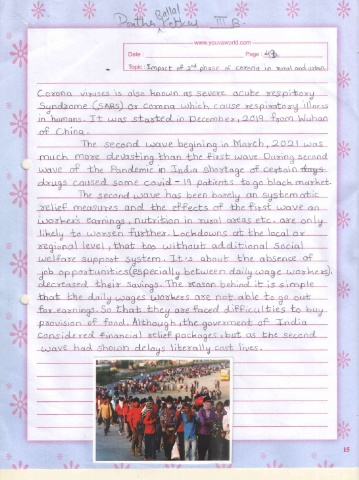 Ballal
Partha Pethey III B.
www.youvaworld.com
Date :
Page : 48
Topic : Impact of 2nd phase of corona in rural and urban
Corona viruses is also known as severe acute respiritory
Syndrome (SARS) or corona which cause respiratory illness
in humans. It was started in December, 2019 from Wuhan
of China.
The second wave begining in March, 2021 was
much more devasting than the first wave. During second
wave of the Pandemic in India shortage of certain days
drugs caused some covid-19 patients to go black market.
The second wave has been barely an systematic
relief measures and the effects of the first wave an
worker's earnings, nutrition in rural areas etc. are only
likely to worsen further. Lockdowns at the local or
regional level, that too without additional social
welfare support system. It's about the absence of
job opportunities (especially between daily wage workers).
decreased their savings. The reason behind it is simple
that the daily wages workers are not able to go out
for earnings. So that they are faced difficulties to buy
provision of food. Although, the goverment of India
considered financial relief packages, but as the second
wave had shown delays literally cost lives.
15